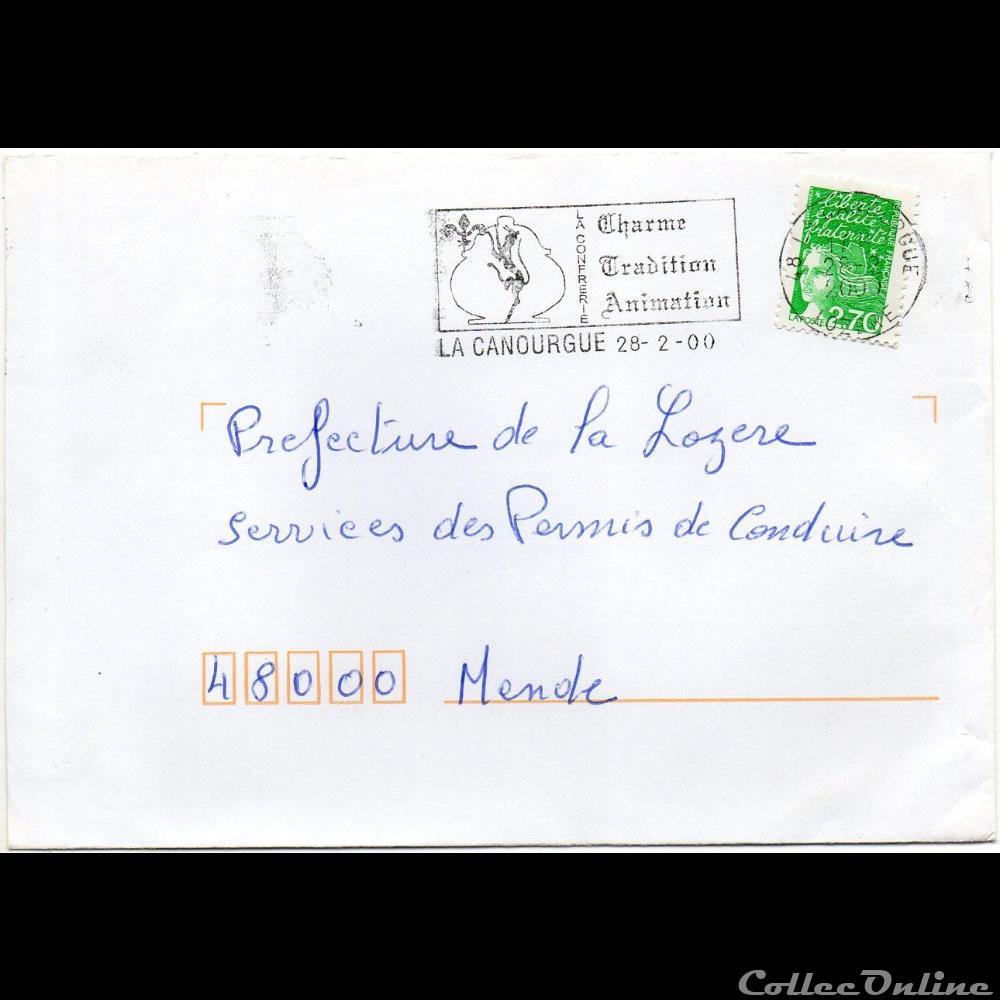 LA CONFRERIE
Charme
Tradition
Animation
LA CANOURGUE 28-2-00
liberté
égalité
fraternité
RÉPUBLIQUE FRANÇAISE
LA POSTE
2,70
Prefecture de la Lozere
Services des Permis de Conduire
48000 Mende
CollecOnline